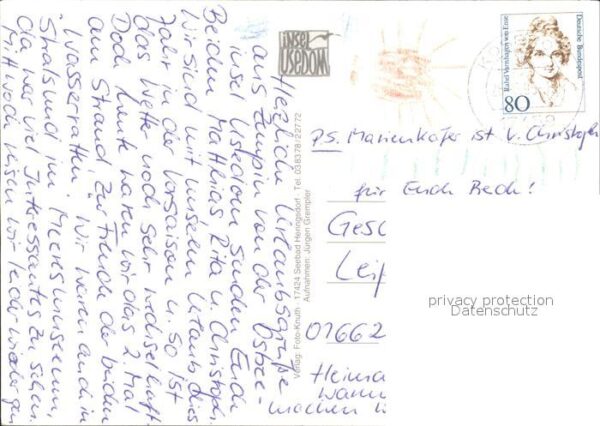 Herzliche Urlaubsgrüße
aus Zempin von der Ostsee-
insel Usedom senden Euch
Beiden Matthias, Rita u. Christoph.
Wir sind mit unserem Urlaub dies
Jahr in der Vorsaison u. so ist
das Wetter noch sehr wechselhaft.
Doch heute waren wir das 2. Mal
am Strand, zur Freude der beiden
"Wasserratten. Wir waren auch in
Stralsund im Meeresmuseum,
da war viel Interessantes zu sehen.
Mittwoch müssen wir leider wieder gen
Heima
wann
machen
insel
USEDOM
Verlag: Foto-Knuth · 17424 Seebad Heringsdorf · Tel. 038378/22772
Aufnahmen: Jürgen Grempler
Deutsche Bundespost
Rahel Varnhagen von Ense
80
P.S. Marienkäfer ist v. Christoph
für Euch Beide!
Gesc
Leip
01662
privacy protection
Datenschutz